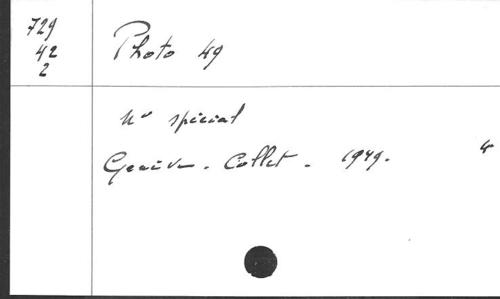 729
42
2
Photo 49
No spécial
Genève. Collet. 1949. 4o